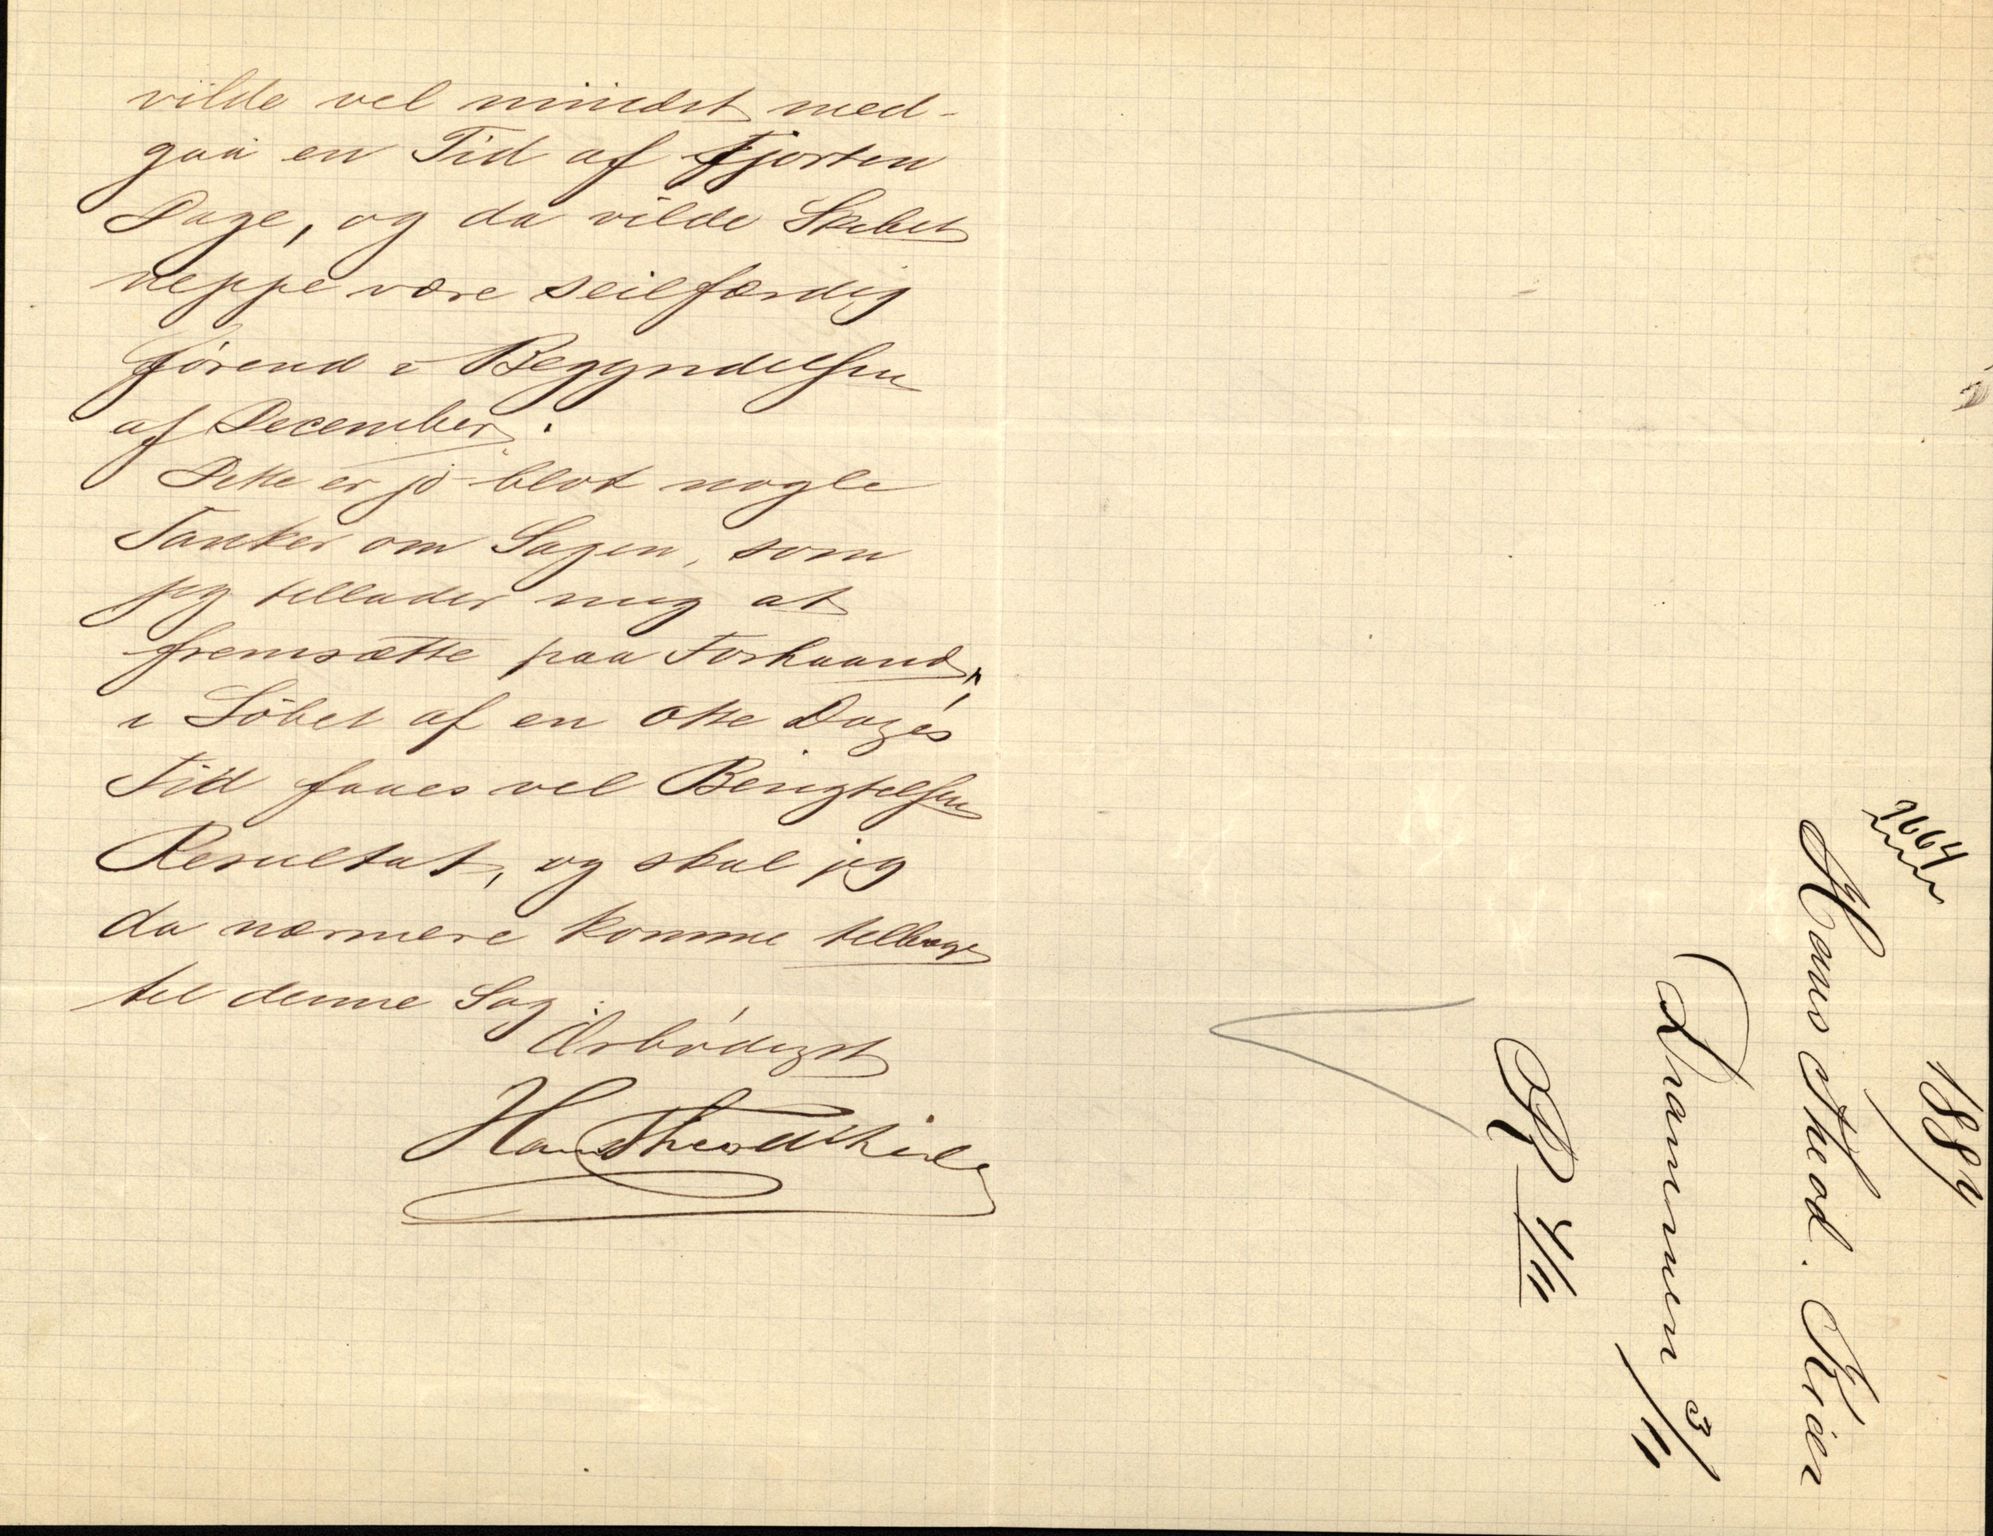 vilde vel mindst med-
gaa en Tid af fjorten
Dage, og da vilde Skibet
neppe være seilfærdig
førend i Begyndelsen
af December.
Dette er jo blot nogle
Tanker om Sagen, som
jeg tillader mig at
fremsætte paa Forhaand,
i Løbet af en otte Dages
Tid faaes vel Besigtelsen
Resultat, og skal jeg
da nærmere komme tilbage
til denne Sag.
Ærbødigst
Hans Theod Kiær
9664
1884
Hans Theod. Kiær
Drammen 3/11
4/11